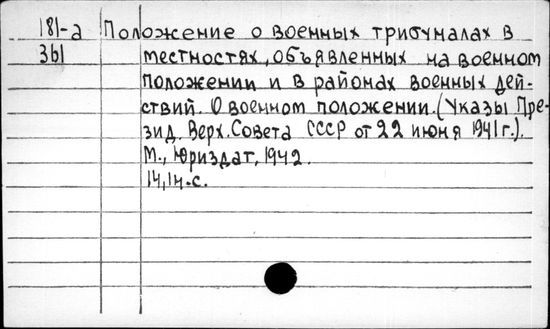 181-а Положение о военных трибуналах в
361 местностях, объявленных на военном
положении и в районах военных дей-
ствий. О военном положении. (Указы Пре-
зид. Верх. Совета СССР от 22 июня 1941 г.).
М., Юриздат, 1942.
14,14. с.